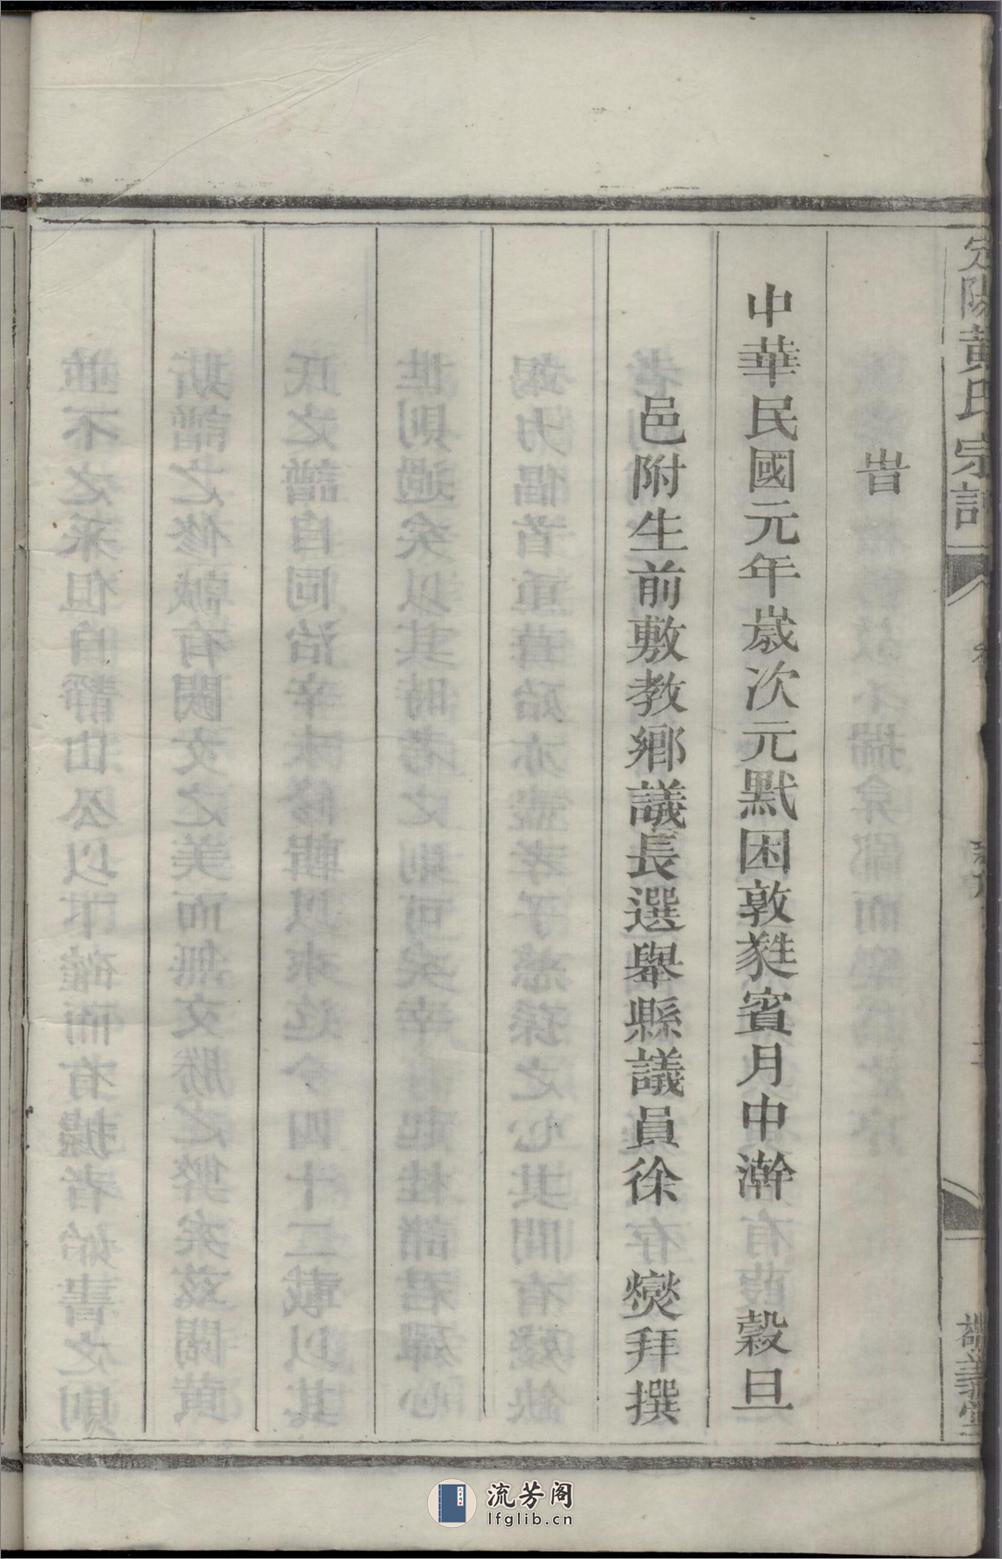 定陽黄氏宗譜
旹
中華民國元年歲次元黓困敦蕤賓月中澣 穀旦
邑附生前敷教鄉議長選舉縣議員徐 爕拜撰
流芳阁
lfglib.cn